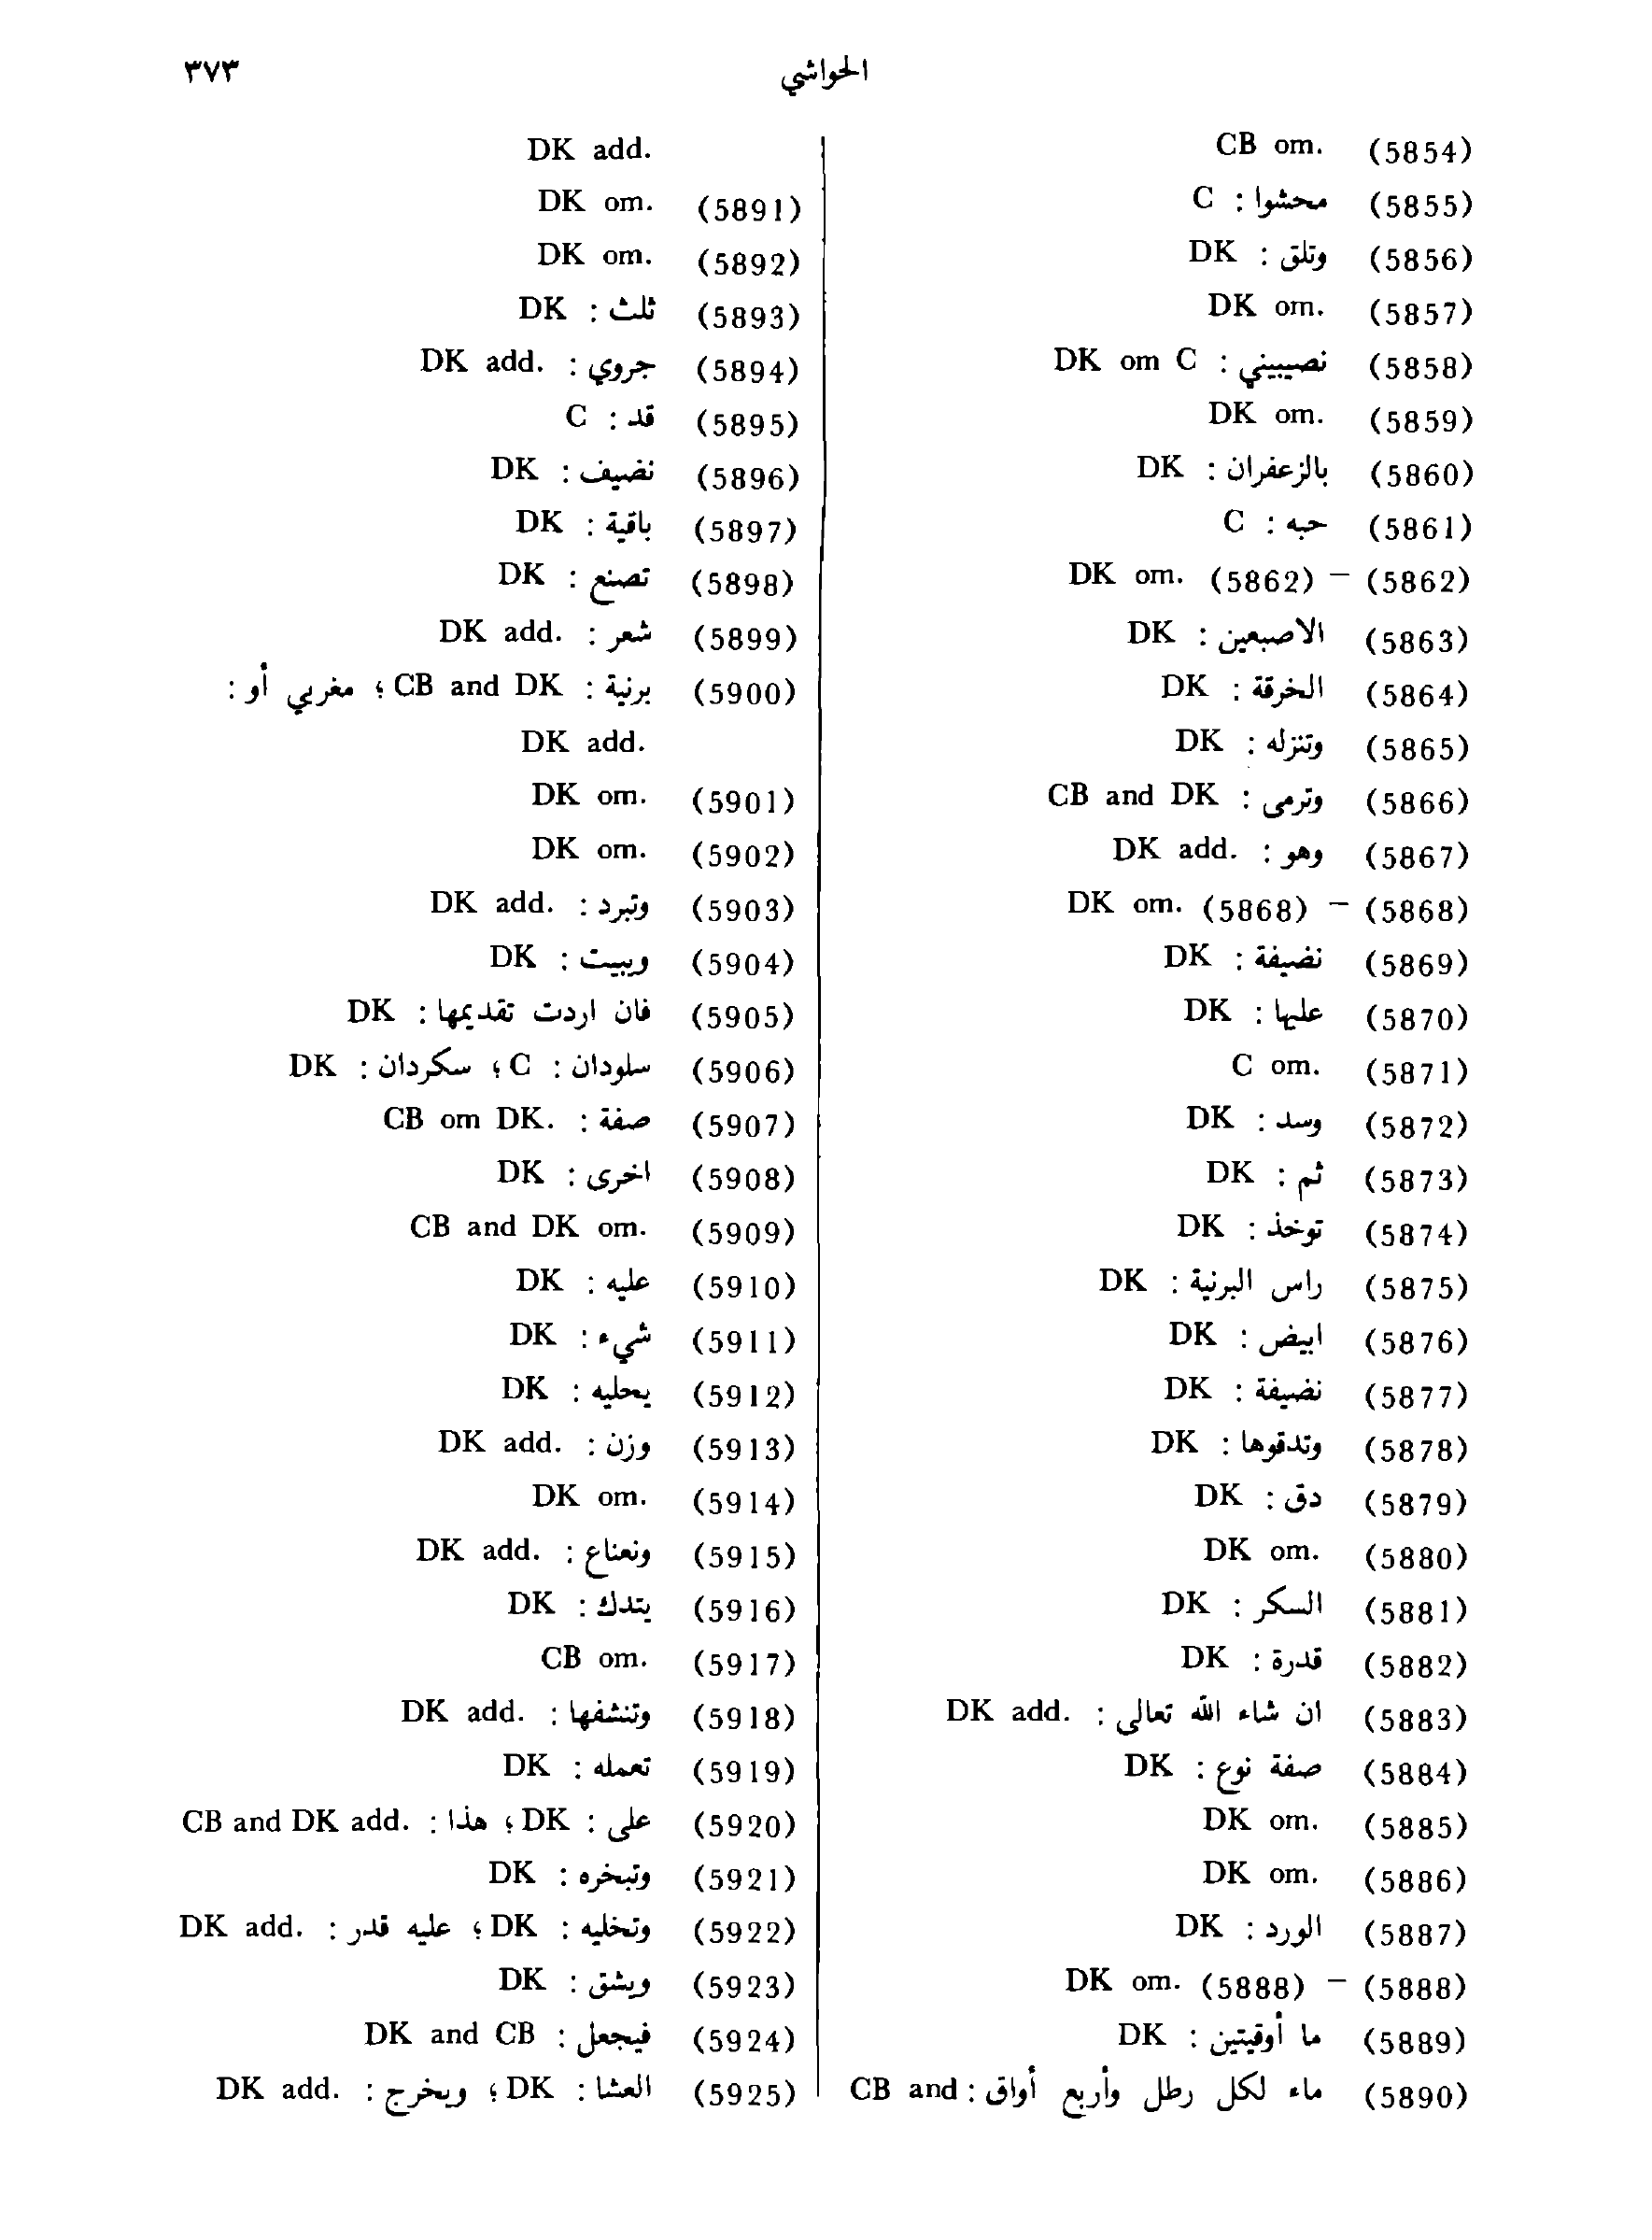 الحواشي ٣٧٣
(5854) CB om.
(5855) محشوا : C
(5856) وتلق : DK
(5857) DK om.
(5858) نصيبيني : DK om C
(5859) DK om.
(5860) بالزعفران : DK
(5861) حبه : C
(5862) – (5862) DK om.
(5863) الاصبعين : DK
(5864) الخرقة : DK
(5865) وتنزله : DK
(5866) وترمى : CB and DK
(5867) وهو : DK add.
(5868) – (5868) DK om.
(5869) نضيفة : DK
(5870) عليها : DK
(5871) C om.
(5872) وسد : DK
(5873) ثم : DK
(5874) توخذ : DK
(5875) راس البرنية : DK
(5876) ابيض : DK
(5877) نضيفة : DK
(5878) وتدقوها : DK
(5879) دق : DK
(5880) DK om.
(5881) السكر : DK
(5882) قدرة : DK
(5883) ان شاء الله تعالى : DK add.
(5884) صفة نوع : DK
(5885) DK om.
(5886) DK om.
(5887) الورد : DK
(5888) – (5888) DK om.
(5889) ما أوقيتين : DK
(5890) ماء لكل رطل وأربع أواق : CB and
DK add.
(5891) DK om.
(5892) DK om.
(5893) ثلث : DK
(5894) جروي : DK add.
(5895) قد : C
(5896) نضيف : DK
(5897) باقية : DK
(5898) تصنع : DK
(5899) شعر : DK add.
(5900) برنية : CB and DK ؛ مغربي أو :
DK add.
(5901) DK om.
(5902) DK om.
(5903) وتبرد : DK add.
(5904) ويبيت : DK
(5905) فان اردت تقديمها : DK
(5906) سلودان : C ؛ سكردان : DK
(5907) صفة : CB om DK.
(5908) اخرى : DK
(5909) CB and DK om.
(5910) عليه : DK
(5911) شيء : DK
(5912) يحليه : DK
(5913) وزن : DK add.
(5914) DK om.
(5915) ونعناع : DK add.
(5916) يتدك : DK
(5917) CB om.
(5918) وتنشفها : DK add.
(5919) تعمله : DK
(5920) على : DK ؛ هذا : CB and DK add.
(5921) وتبخره : DK
(5922) وتخليه : DK ؛ عليه قدر : DK add.
(5923) ويشق : DK
(5924) فيجعل : DK and CB
(5925) العشا : DK ؛ ويخرج : DK add.